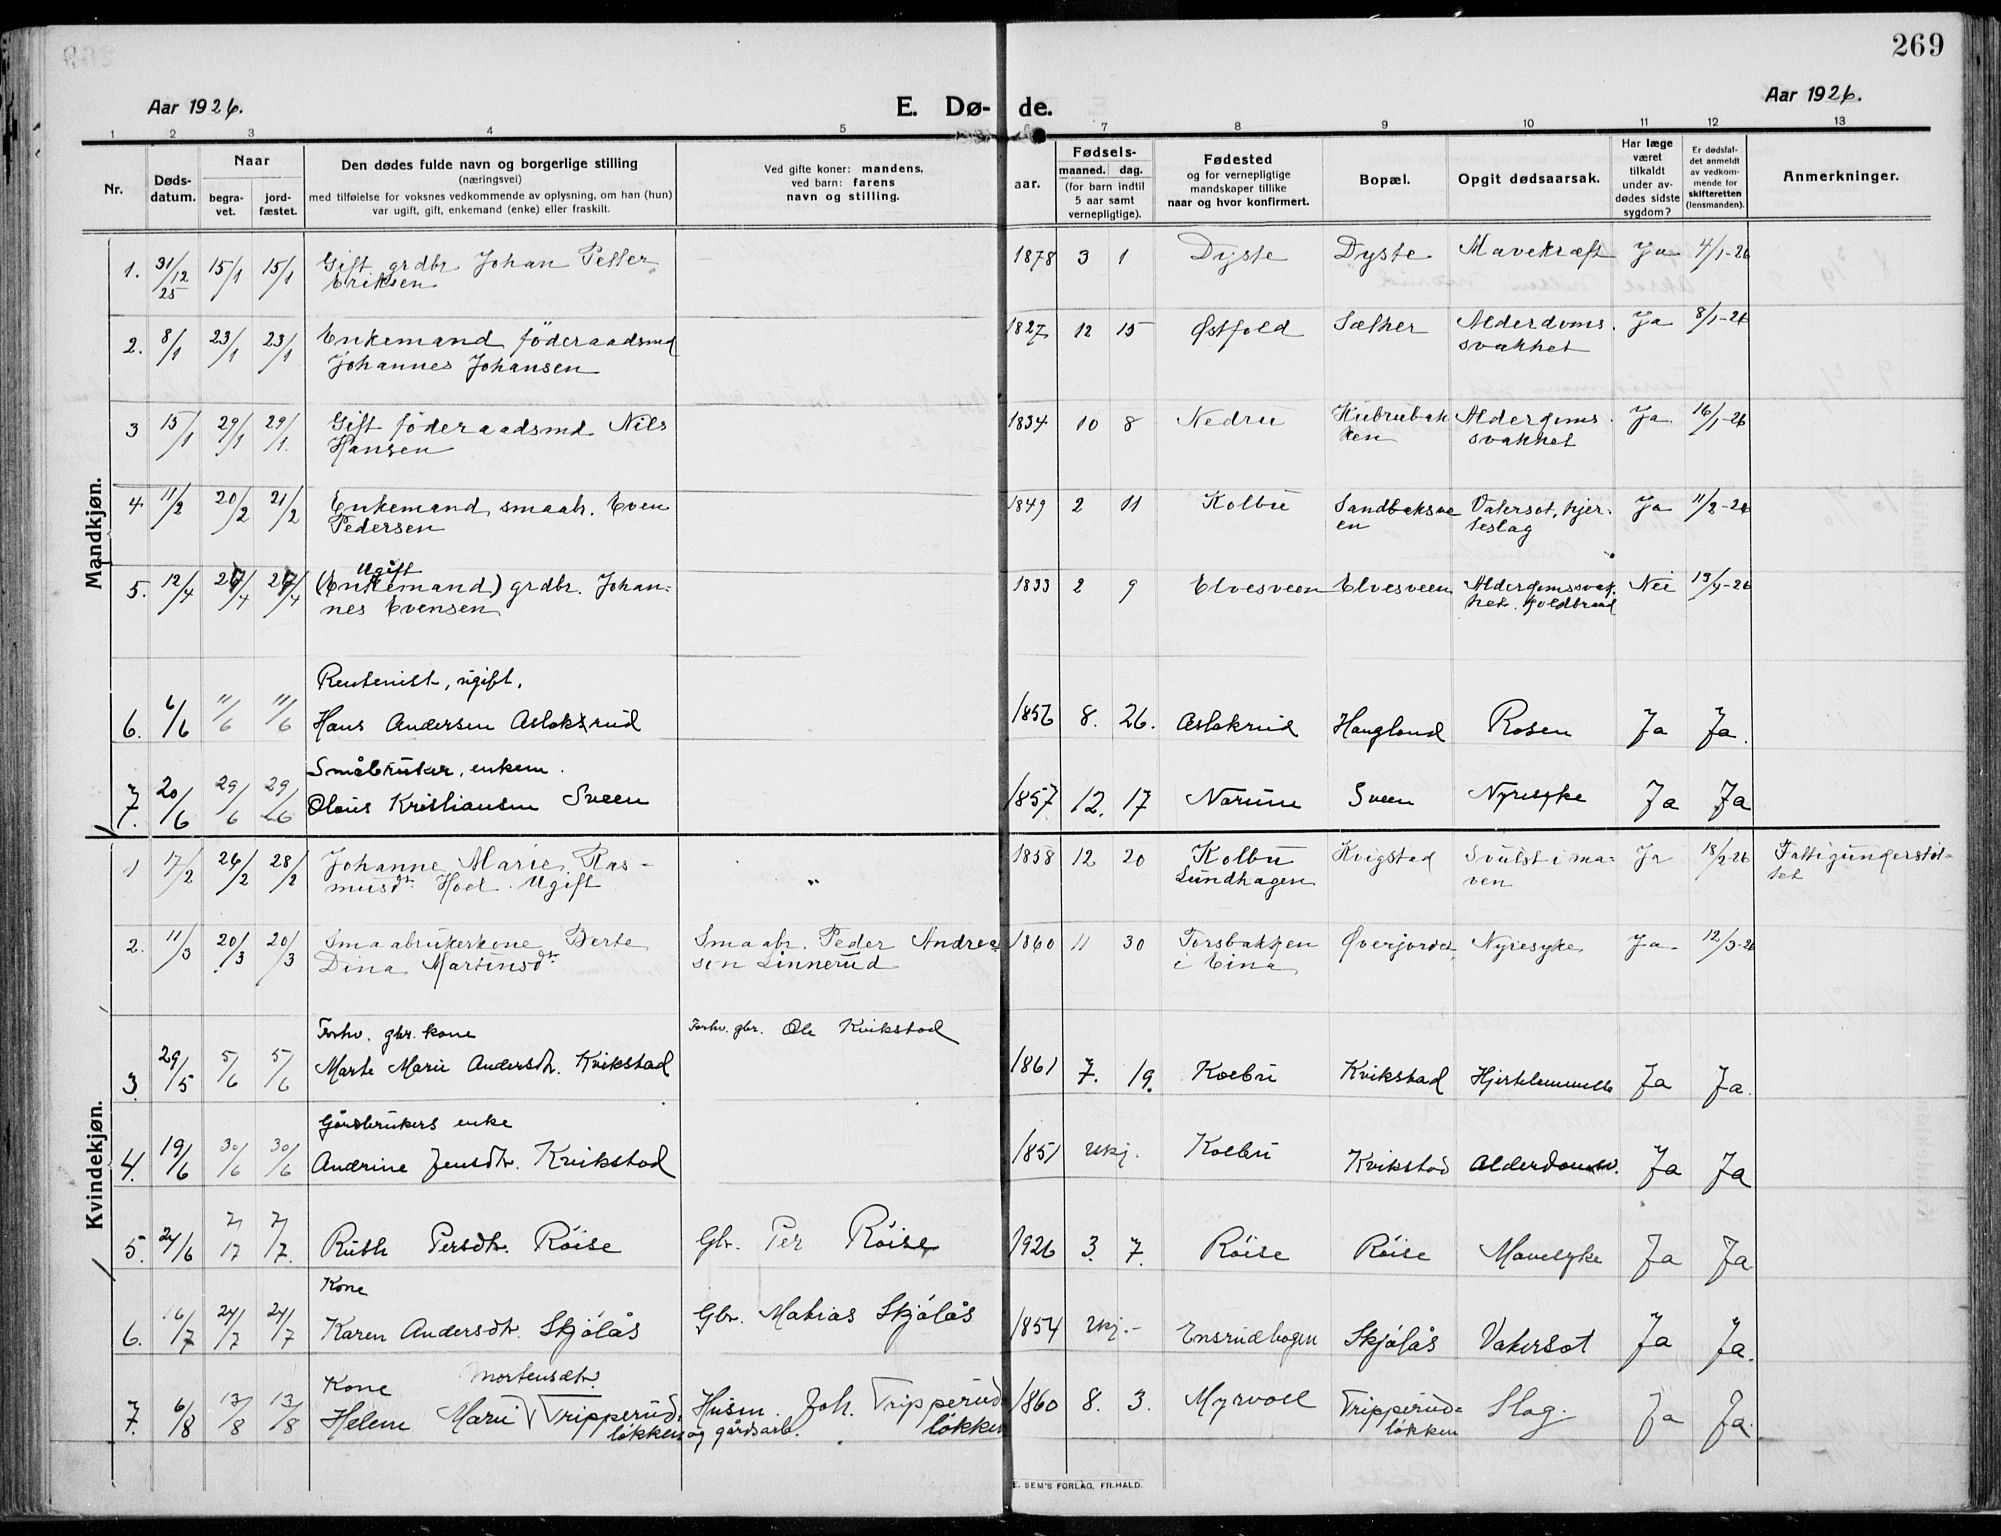 269
Aar 1926.
E. Dø- de.
Aar 1926.
1 2 3 4 5 7 8 9 10 11 12 13
Nr.
Døds-
datum.
Naar
begra-
vet.
jord-
fæstet.
Den dødes fulde navn og borgerlige stilling
(næringsvei)
med tilføielse for voksnes vedkommende av oplysning, om han (hun)
var ugift, gift, enkemand (enke) eller fraskilt.
Ved gifte koner: mandens,
ved barn: farens
navn og stilling.
aar.
Fødsels-
maaned. dag.
(for barn indtil
5 aar samt
vernepligtige).
Fødested
og for vernepligtige
mandskaper tillike
naar og hvor konfirmert.
Bopæl.
Opgit dødsaarsak.
Har læge
været
tilkaldt
under av-
dødes sidste
sygdom?
Er dødsfal-
det anmeldt
av vedkom-
mende for
skifteretten
(lensmanden).
Anmerkninger.
Mandkjøn.
1. 31/12 25 15/1 15/1 Gift grdbr Johan Petter 1878 3 1 Dyste Dyste Mavekræft Ja 4/1-26
Eriksen
2. 8/1 23/1 23/1 Enkemand föderaadsmd 1827 12 15 Østfold Sæther Alderdoms- Ja 8/1-26
Johannes Johansen svakhet
3 15/1 29/1 29/1. Gift föderaadsmd. Nils 1834 10 8 Nedru Alderdoms- Ja 16/1-26
Hansen ken svakhet
4 11/2 20/2 21/2 Enkemand, smaabr. Even 1849 2 11 Kolbu Sandbaksve Vatersot, hjer- Ja 11/2-26
Pedersen en teslag
Ugift
5. 12/4 27/4 27/4 (Enkemand) grdbr. Johan- 1833 2 9 Elvesveen Elvesveen Alderdomssvak- Nei 13/4-26
nes Evensen het. Koldbrand
Rentenist, ugift.
6. 6/6 11/6 11/6 Hans Andersen Aslaksrud 1856 8. 26. Aslakrud Hauglund Rosen Ja Ja.
Småbruker, enkem.
7. 20/6 29/6 29/6 Olaus Kristiansen Sveen 1857 12. 17 Narum Sveen Nyresyke Ja Ja
Kvindekjøn.
1 17/2 26/2 28/2 Johanne Marie Ras- „ 1858 12 20 Kolbu Kvigstad Svulst i ma- Ja 18/2-26 Fattigunderstöt-
musdtr. Hoel. Ugift Lundhagen ven tet
2. 11/3 20/3 20/3 Smaabrukerkone Berte Smaabr. Peder Andrea- 1860 11 30 Torsbakken Øverjordet Nyresyke Ja 12/3-26
Dina Martinsdtr. sen Linnerud i Eina
Forhv. gbr. kone Forhv. gbr. Ole Kvikstad
3. 29/5 5/6 5/6 Marte Marie Andersdtr. Kvikstad 1861 7. 19. Kolbu Kvikstad Hjertelammelse Ja Ja.
Gårdbrukers enke
4. 19/6 30/6 30/6 Andrine Jensdtr. Kvikstad 1851 ukj. Kolbu Kvikstad Alderdomsv. Ja Ja
5. 24/6 7/7 Ruth Persdtr. Röise Gbr. Per Röise 1926 3. 7. Röise Röise Mavesyke Ja Ja.
Kone
6. 16/7 24/7 24/7 Karen Andersdtr. Skjölås Gbr. Mathias Skjölås 1854 ukj.- Ensrudhagen Skjölås Vatersot Ja Ja.
Kone Mortensdtr.
7. 6/8 13/8 13/8 Helene Marie Tripperud- Husm. Joh. Tripperud- 1860 8. 3. Myrvoll Tripperud- Slag. Ja Ja.
løkken og gårdsarb. løkken løkken
E. SEM'S FORLAG, FR.HALD.